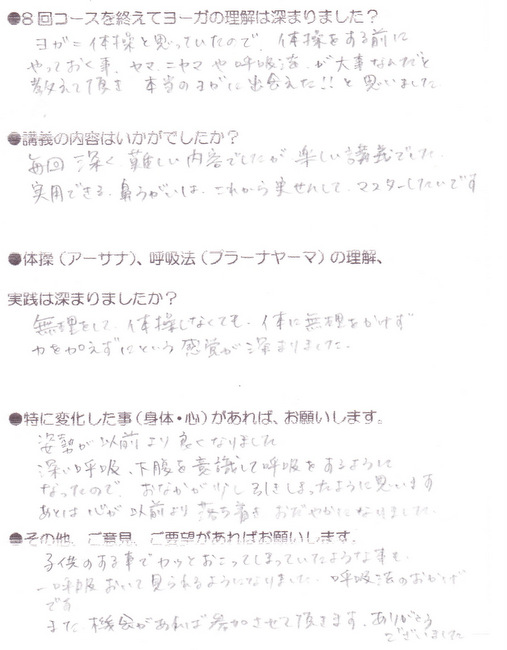 ●8回コースを終えてヨーガの理解は深まりました？
ヨガ＝体操と思っていたので、体操をする前に
やっておく事、ヤマ、ニヤマや呼吸法、が大事なんだと
教えて頂き 本当のヨガに出会えた!!と思いました
●講義の内容はいかがでしたか？
毎回 深く、難しい内容でしたが 楽しい講義でした。
実用できる、鼻うがいは、これから実せんして、マスターしたいです
●体操（アーサナ）、呼吸法（プラーナヤーマ）の理解、
実践は深まりましたか？
無理をして、体操しなくても、体に無理をかけず
力を加えずにという感覚が深まりました。
●特に変化した事（身体・心）があれば、お願いします。
姿勢が以前より良くなりました
深い呼吸、下腹を意識して呼吸をするように
なったので、おなかが少し引きしまったように思います
あとは心が以前より落ち着き おだやかになりました。
●その他、ご意見、ご要望があればお願いします。
子供のする事でカッとおこってしまっていたような事も、
一呼吸おいて見られるようになりました。呼吸法のおかげ
です
また機会があれば参加させて頂きます。ありがとう
ございました